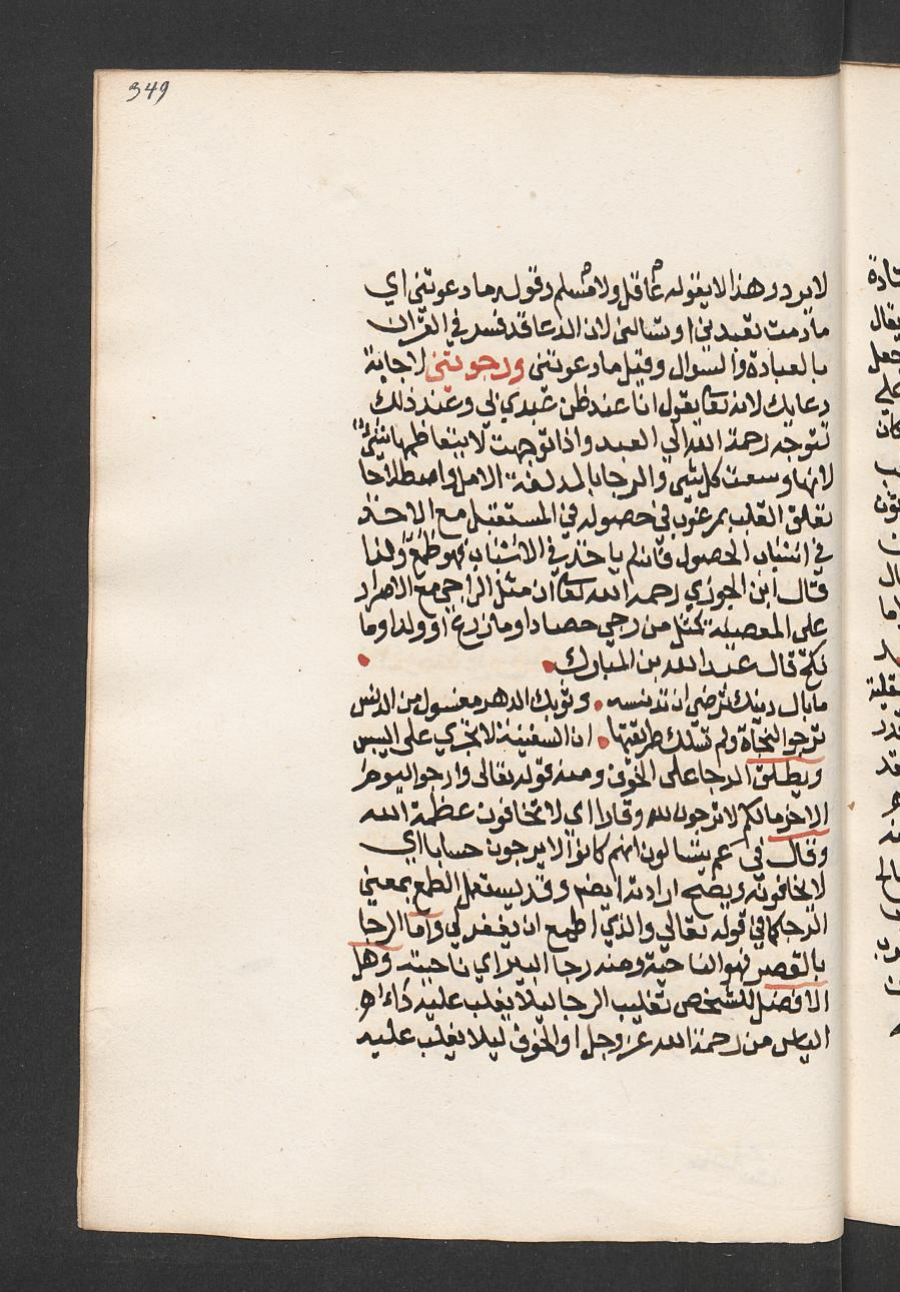 349
لا يرد وهذا لا يقوله عاقل ولا مسلم وقوله ما دعوتني اي
ما دمت تعبدني او تسالني لان الدعا قد فسر في القران
بالعبادة والسوال وقيل ما دعوتني ورجوتني لاجابة
دعايك لانه تعا يقول انا عند ظن عبدي بي وعند ذلك
تتوجه رحمة الله الي العبد واذا توجهت لا يتعاظمها شيء
لانها وسعت كل شي والرجا بالمد لغة الامل واصطلاحا
تعلق القلب بمرغوب في حصوله في المستقبل مع الاخذ
في اسباب الحصول فان لم ياخذ في الاسباب فهو طمع ولذا
قال ابن الجوزي رحمه الله تعا ان مثل الراجي مع الاصرار
علي المعصية كمثل من رجي حصادا وما زرع او ولدا وما
نكح قال عبد الله بن المبارك
ما بال دينك ترضي ان تدنسه وثوبك الدهر مغسول من الدنس
ترجوا النجاة ولم تسلك طريقتها ان السفينة لا تجري علي اليبس
ويطلق الرجا علي الخوف ومنه قوله تعالى وارجوا اليوم
الاخر مالكم لا ترجون لله وقارا اي لا تخافون عظمة الله
وقال في عم يتسالون انهم كانوا لا يرجون حسابا اي
لا يخافونه ويصح ارادته ايضم وقد يستعمل الطمع بمعني
الرجا كما في قوله تعالي والذي اطمع ان يغفر لي واما الرجا
بالقصر فهو الناحية ومنه رجا البير اي ناحيته وهل
الافضل للشخص تغليب الرجا ليلا يغلب عليه داء
الياس من رحمة الله عز وجل او الخوف ليلا يغلب عليه